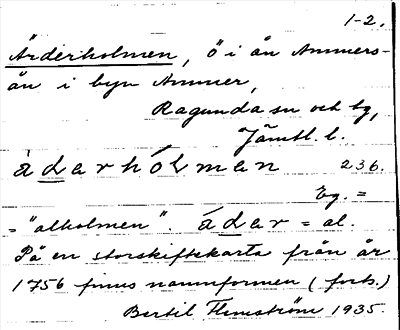 1-2.
Årderholmen, ö i ån Ammers-
ån i byn Ammer,
Ragunda sn och tg,
Jämtl. l.
ådarhólman 236.
Eg. =
= "alholmen". ádar = al.
På en storskifteskarta från år
1756 finns namnformen (forts.)
Bertil Flemström 1935.